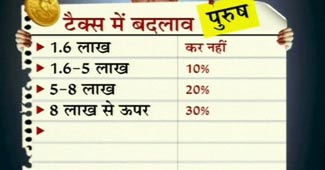 टैक्स में बदलाव पुरुष
1.6 लाख कर नहीं
1.6-5 लाख 10%
5-8 लाख 20%
8 लाख से ऊपर 30%